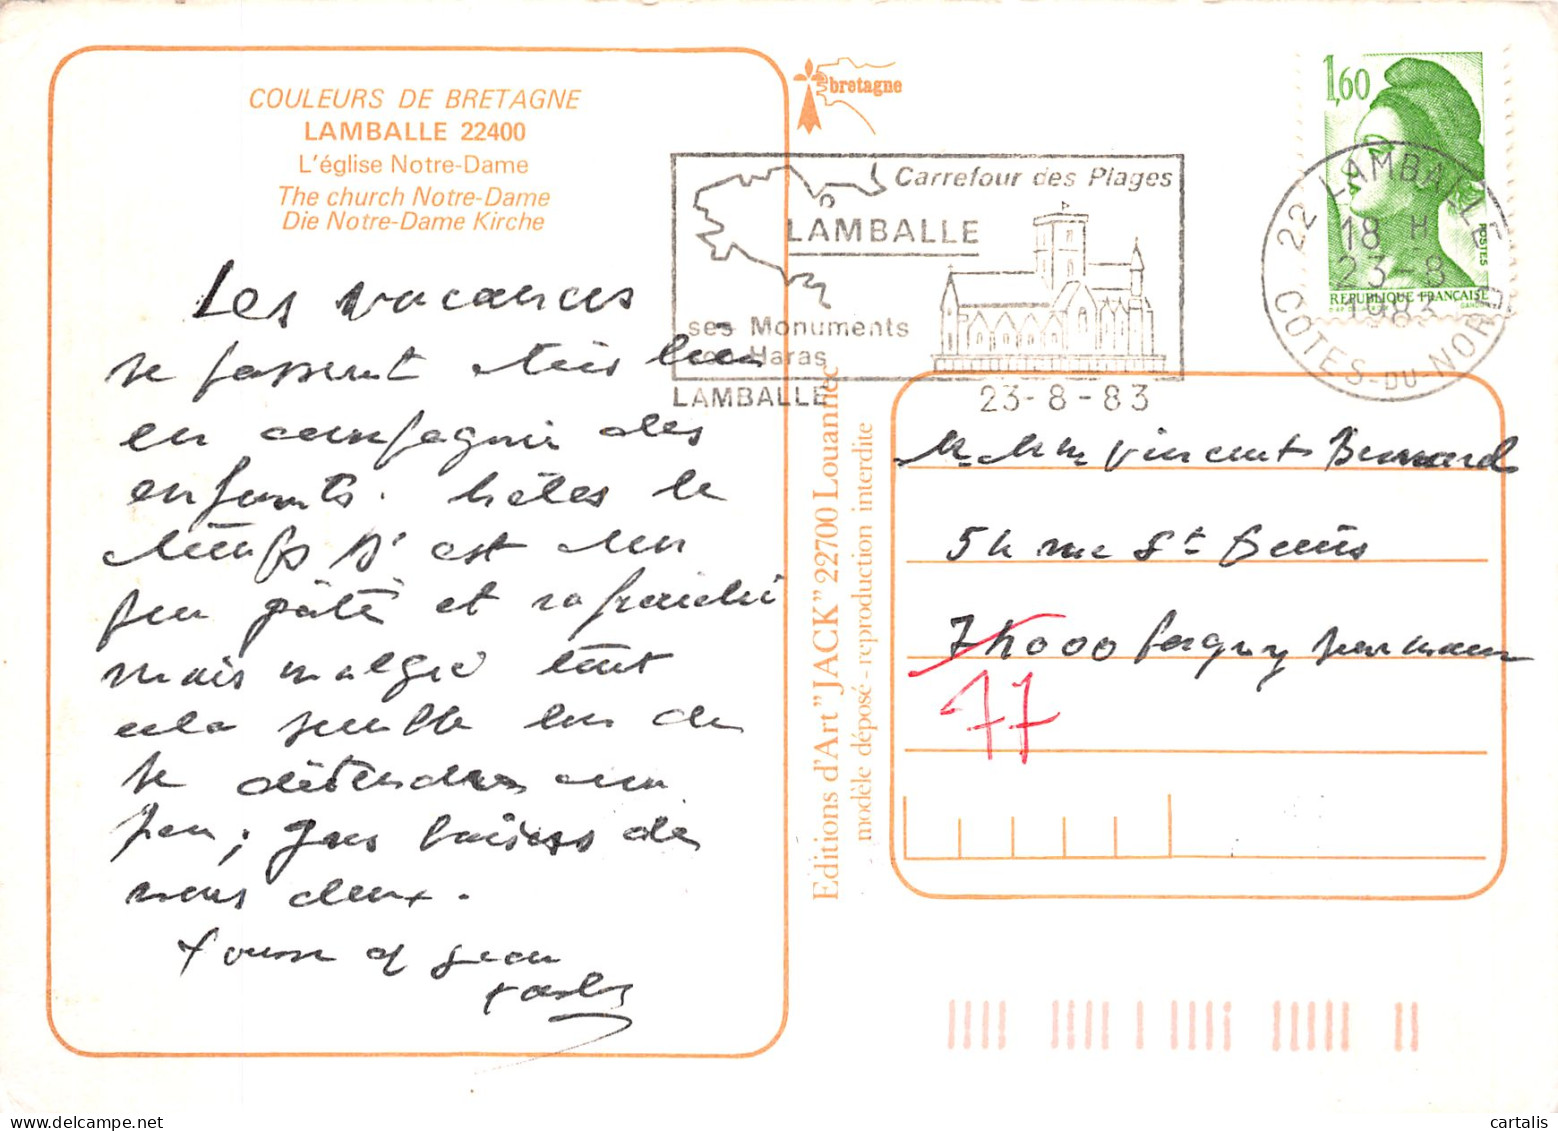 COULEURS DE BRETAGNE
LAMBALLE 22400
L'église Notre-Dame
The church Notre-Dame
Die Notre-Dame Kirche
Les vacances
se passent très bien
en compagnie des
enfants. hélas le
temps s'est un
peu gâté et rafraichi
mais malgré tout
cela semble bon de
se détendre un
peu, gros baisers de
nous deux.
et Jean
bretagne
Carrefour des Plages
LAMBALLE
ses Monuments
son Haras
LAMBALLE
23-8-83
1,60
POSTES
REPUBLIQUE FRANÇAISE
GANDON
22 LAMBALLE
18 H
23-8
1983
COTES-DU-NORD
Editions d'Art "JACK" 22700 Louannec
modèle déposé - reproduction interdite
M. Mme Vincent
54 rue St Denis
77
cartalis